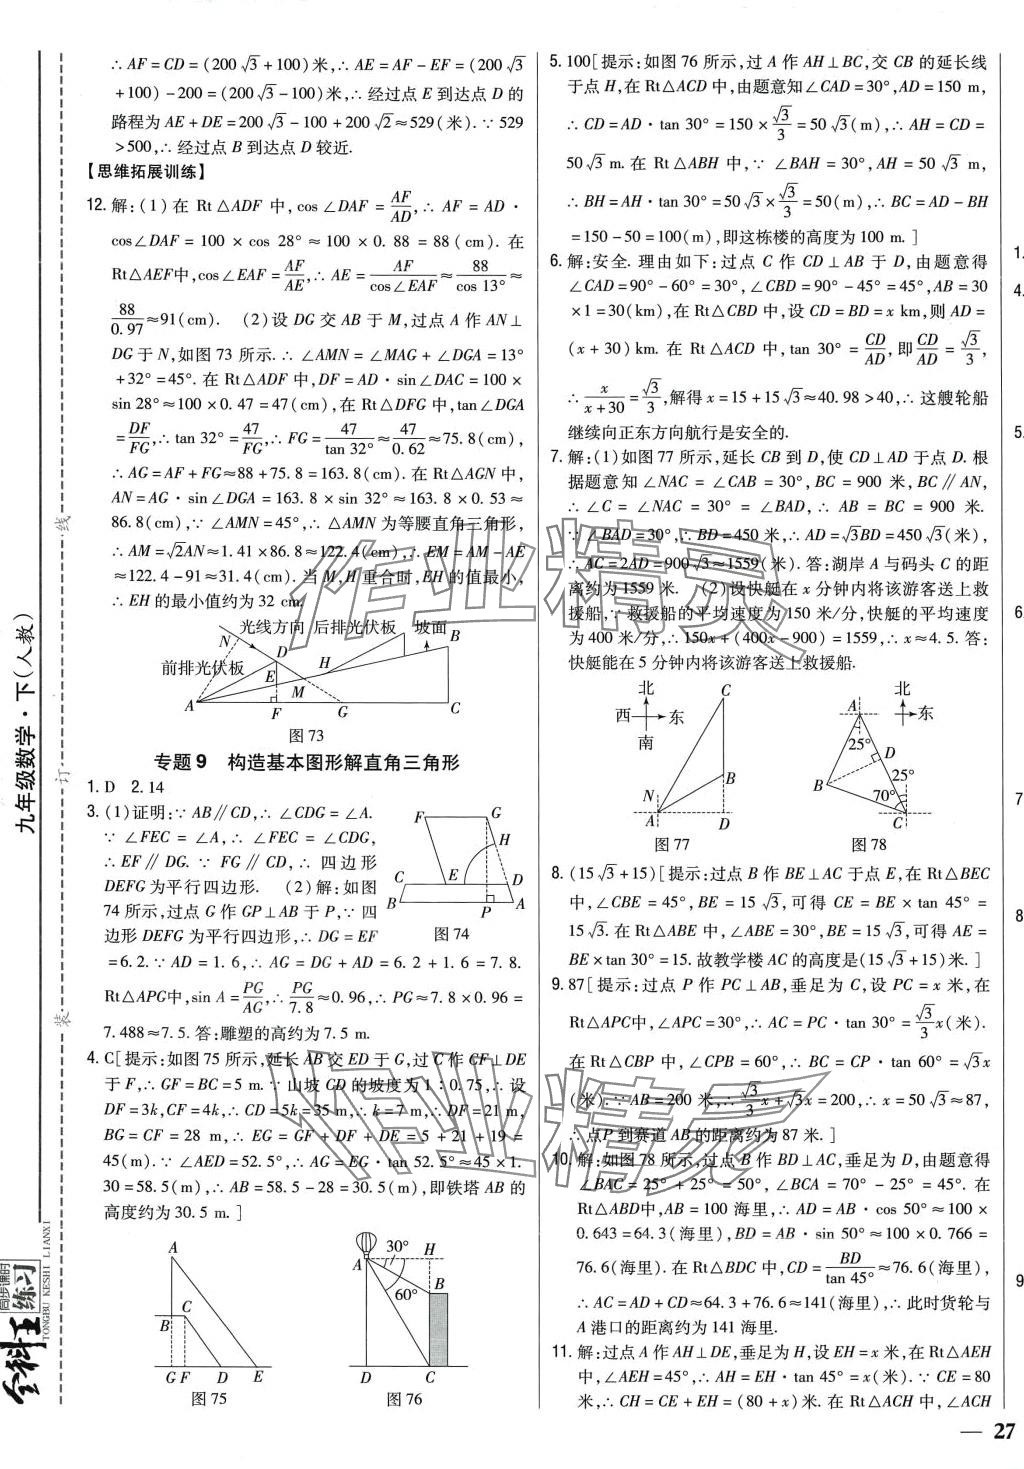 ∴AF=CD=(200√3+100)米,∴AE=AF-EF=(200√3
+100)-200=(200√3-100)米,∴经过点E到达点D的
路程为AE+DE=200√3-100+200√2≈529(米).∵529
>500,∴经过点B到达点D较近.
【思维拓展训练】
12.解:(1)在Rt△ADF中,cos∠DAF=AF/AD,∴AF=AD·
cos∠DAF=100×cos 28°≈100×0.88=88(cm).在
Rt△AEF中,cos∠EAF=AF/AE,∴AE=AF/cos∠EAF≈88/cos 13°≈
88/0.97≈91(cm). (2)设DG交AB于M,过点A作AN⊥
DG于N,如图73所示.∴∠AMN=∠MAG+∠DGA=13°
+32°=45°.在Rt△ADF中,DF=AD·sin∠DAC=100×
sin 28°≈100×0.47=47(cm),在Rt△DFG中,tan∠DGA
=DF/FG,∴tan 32°=47/FG,∴FG=47/tan 32°≈47/0.62≈75.8(cm),
∴AG=AF+FG≈88+75.8=163.8(cm).在Rt△AGN中,
AN=AG·sin∠DGA=163.8×sin 32°≈163.8×0.53≈
86.8(cm).∵∠AMN=45°,∴△AMN为等腰直角三角形,
∴AM=√2AN≈1.41×86.8≈122.4(cm),∴EM=AM-AE
≈122.4-91≈31.4(cm).当M,H重合时,EH的值最小,
∴EH的最小值约为32 cm.
光线方向 后排光伏板 坡面 B
N
D
前排光伏板 E H
M
A F G C
图73
专题9 构造基本图形解直角三角形
1.D 2.14
3.(1)证明:∵AB∥CD,∴∠CDG=∠A.
∵∠FEC=∠A,∴∠FEC=∠CDG,
∴EF∥DG.∵FG∥CD,∴四边形
DEFG为平行四边形. (2)解:如图
74所示,过点G作GP⊥AB于P,∵四
边形DEFG为平行四边形,∴DG=EF
F G
H
C E D
B P A
图74
=6.2.∵AD=1.6,∴AG=DG+AD=6.2+1.6=7.8.
Rt△APG中,sin A=PG/AG,∴PG/7.8≈0.96,∴PG≈7.8×0.96=
7.488≈7.5.答:雕塑的高约为7.5 m.
4.C[提示:如图75所示,延长AB交ED于G,过C作CF⊥DE
于F,∴GF=BC=5 m.∵山坡CD的坡度为1∶0.75,∴设
DF=3k,CF=4k,∴CD=5k=35 m,∴k=7 m,∴DF=21 m,
BG=CF=28 m,∴EG=GF+DF+DE=5+21+19=
45(m).∵∠AED=52.5°,∴AG=EG·tan 52.5°≈45×1.
30=58.5(m),∴AB=58.5-28=30.5(m),即铁塔AB的
高度约为30.5 m.]
A
C
B
G F D E
图75
A 30° H
60° B
D C
图76
5.100[提示:如图76所示,过A作AH⊥BC,交CB的延长线
于点H,在Rt△ACD中,由题意知∠CAD=30°,AD=150 m,
∴CD=AD·tan 30°=150×√3/3=50√3(m),∴AH=CD=
50√3 m.在Rt△ABH中,∵∠BAH=30°,AH=50√3 m,
∴BH=AH·tan 30°=50√3×√3/3=50(m),∴BC=AD-BH
=150-50=100(m),即这栋楼的高度为100 m.]
6.解:安全.理由如下:过点C作CD⊥AB于D,由题意得
∠CAD=90°-60°=30°,∠CBD=90°-45°=45°,AB=30
×1=30(km),在Rt△CBD中,设CD=BD=x km,则AD=
(x+30)km.在Rt△ACD中,tan 30°=CD/AD,即CD/AD=√3/3,
∴x/(x+30)=√3/3,解得x=15+15√3≈40.98>40,∴这艘轮船
继续向正东方向航行是安全的.
7.解:(1)如图77所示,延长CB到D,使CD⊥AD于点D.根
据题意知∠NAC=∠CAB=30°,BC=900米,BC∥AN,
∴∠C=∠NAC=30°=∠BAD,∴AB=BC=900米.
∵∠BAD=30°,∴BD=450米,∴AD=√3BD=450√3(米),
∴AC=2AD=900√3≈1559(米).答:湖岸A与码头C的距
离约为1559米. (2)设快艇在x分钟内将该游客送上救
援船,∵救援船的平均速度为150米/分,快艇的平均速度
为400米/分,∴150x+(400x-900)=1559,∴x≈4.5.答:
快艇能在5分钟内将该游客送上救援船.
北
西 东
南
C
N B
A D
图77
北
东
A
25°
D
B 25°
70°
C
图78
8.(15√3+15)[提示:过点B作BE⊥AC于点E,在Rt△BEC
中,∠CBE=45°,BE=15√3,可得CE=BE×tan 45°=
15√3.在Rt△ABE中,∠ABE=30°,BE=15√3,可得AE=
BE×tan 30°=15.故教学楼AC的高度是(15√3+15)米.]
9.87[提示:过点P作PC⊥AB,垂足为C,设PC=x米,在
Rt△APC中,∠APC=30°,∴AC=PC·tan 30°=√3/3x(米).
在Rt△CBP中,∠CPB=60°,∴BC=CP·tan 60°=√3x
(米).∵AB=200米,∴√3/3x+√3x=200,∴x=50√3≈87,
∴点P到赛道AB的距离约为87米.]
10.解:如图78所示,过点B作BD⊥AC,垂足为D,由题意得
∠BAC=25°+25°=50°,∠BCA=70°-25°=45°.在
Rt△ABD中,AB=100海里,∴AD=AB·cos 50°≈100×
0.643=64.3(海里),BD=AB·sin 50°≈100×0.766=
76.6(海里),在Rt△BDC中,CD=BD/tan 45°≈76.6(海里),
∴AC=AD+CD≈64.3+76.6≈141(海里),∴此时货轮与
A港口的距离约为141海里.
11.解:过点A作AH⊥DE,垂足为H,设EH=x米,在Rt△AEH
中,∠AEH=45°,∴AH=EH·tan 45°=x米.∵CE=80
米,∴CH=CE+EH=(80+x)米.在Rt△ACH中,∠ACH
— 27
1.
4.
5.
6
7
8
9
九年级数学·下(人教)
装 订 线
全科王
同步课时
练习
TONGBU KESHI LIANXI
作业精灵
作业精灵